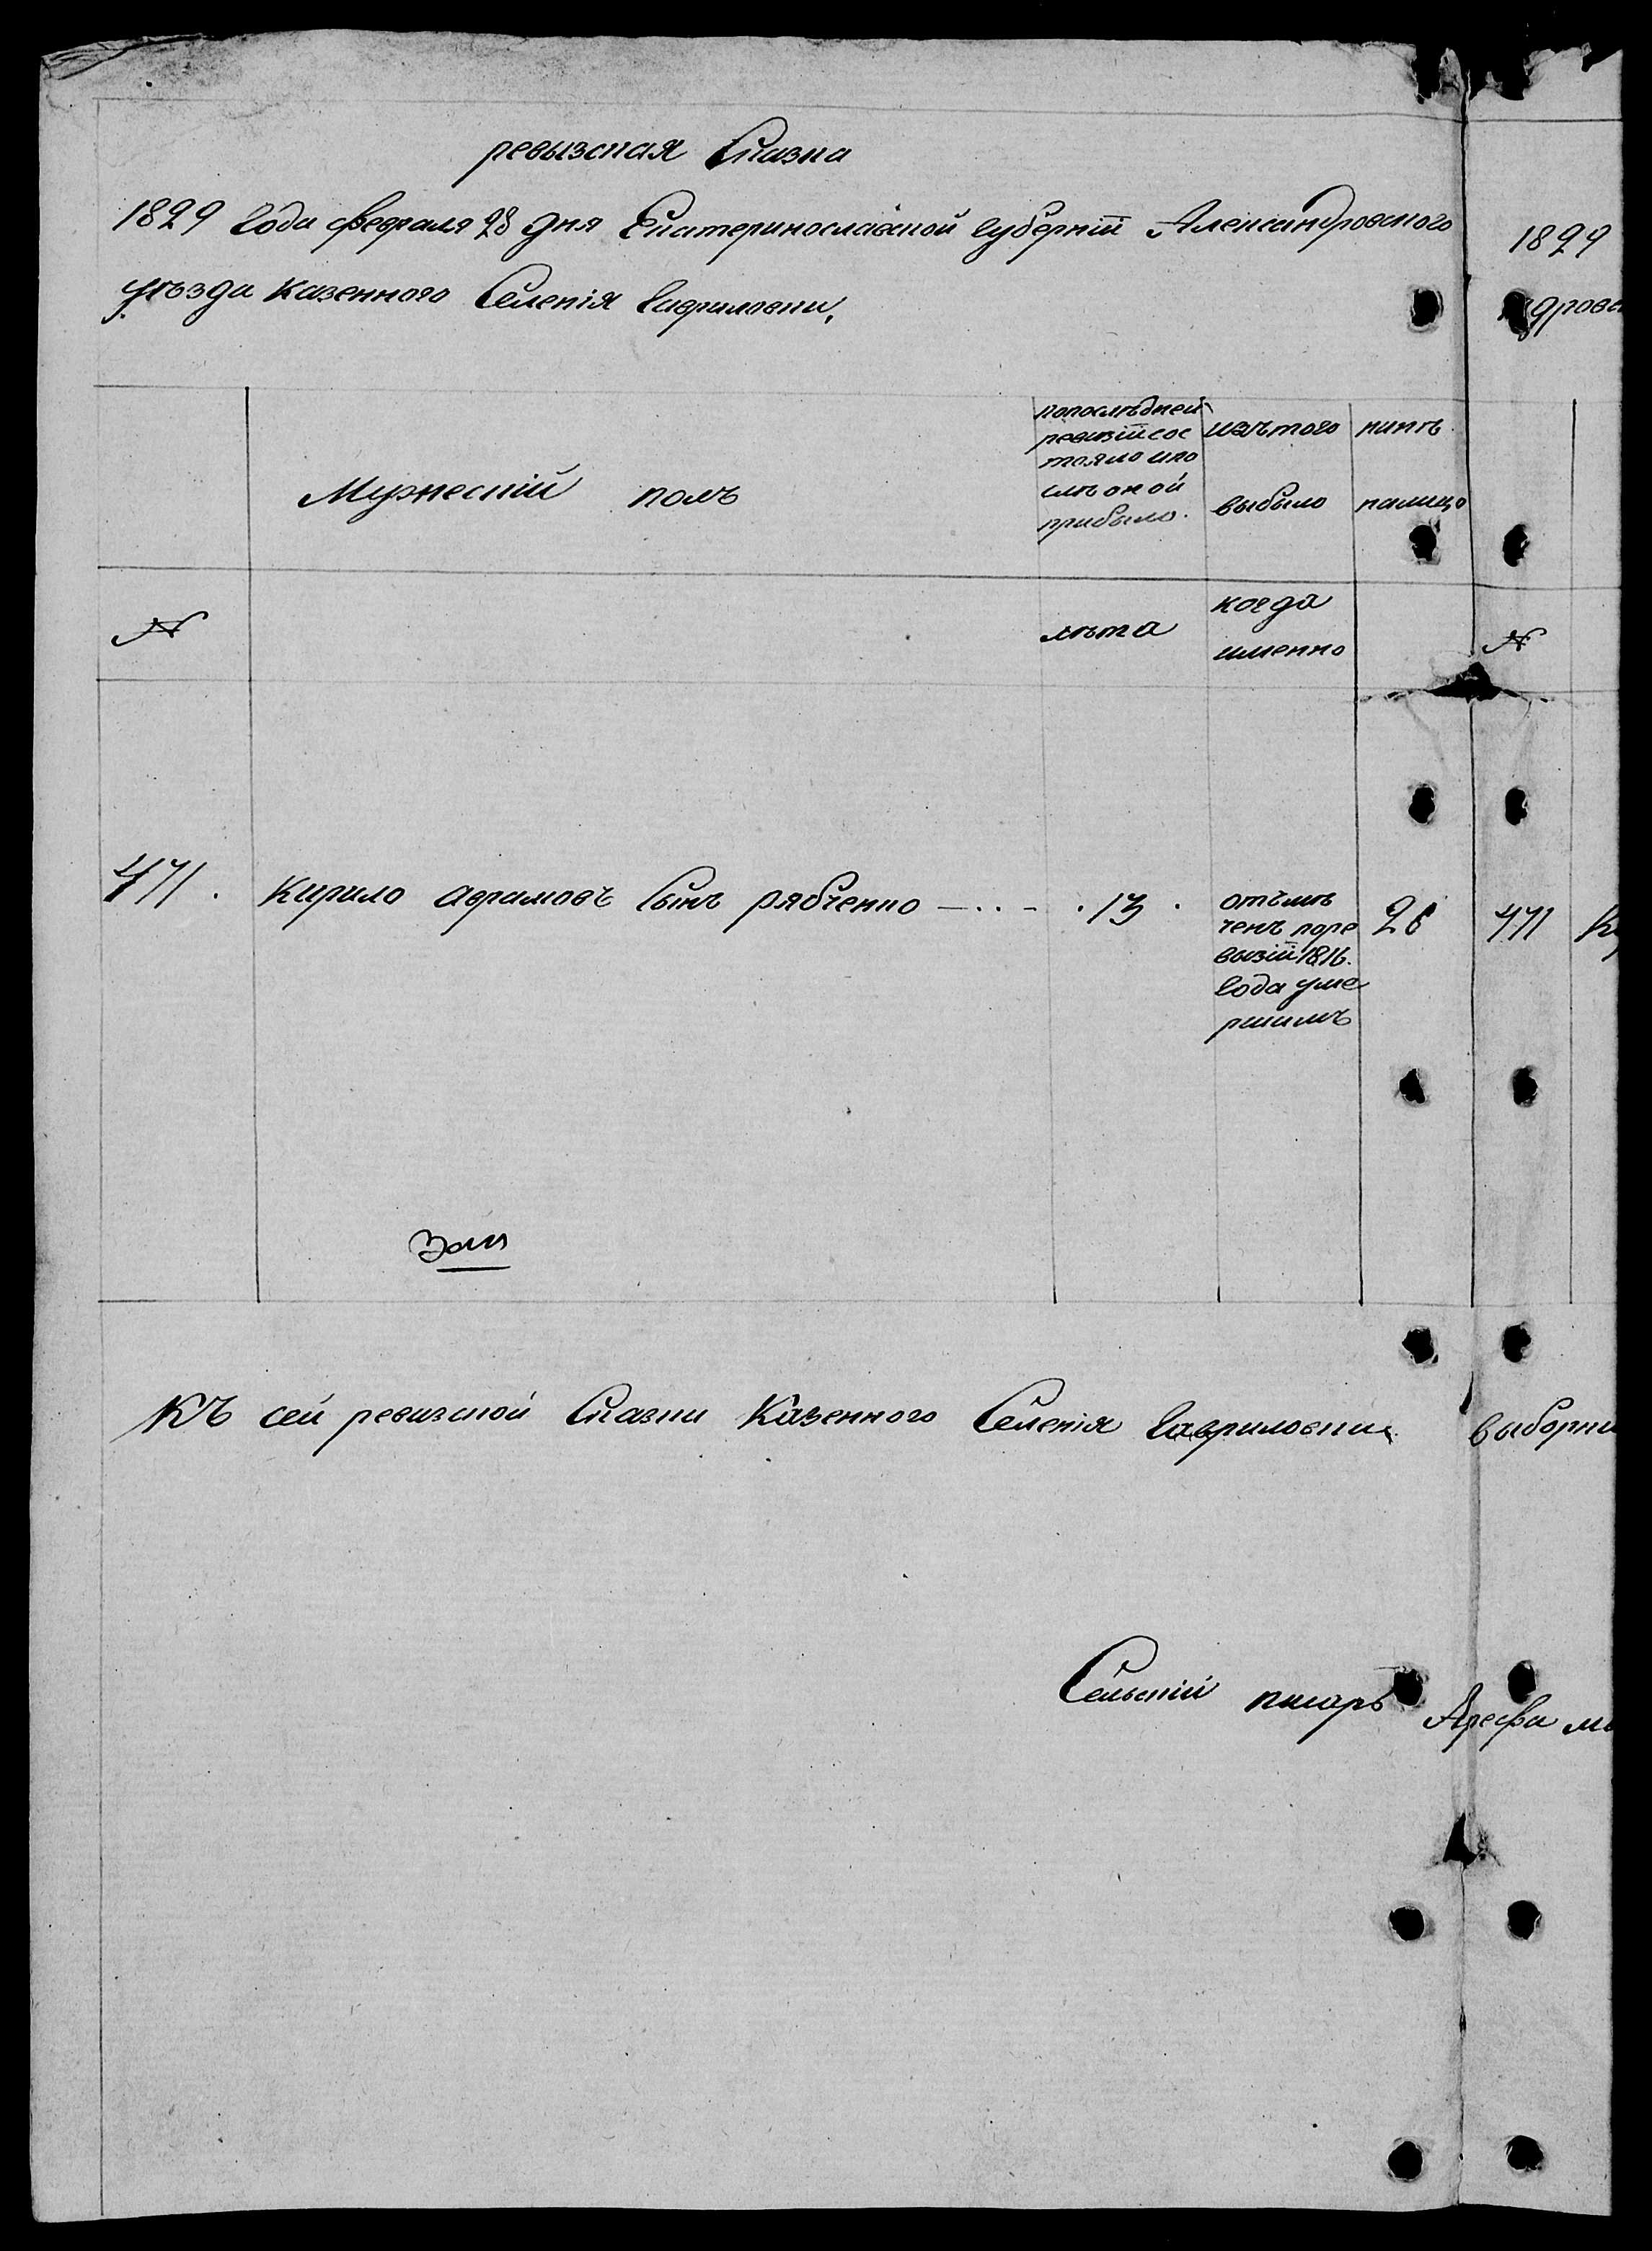 ревызская Сказка
1829 года февраля 28 дня Екатеринославской губерніи Александровского
уѣзда казенного Селенія Гавриловки,
Мужескій полъ
попослѣдней
ревизіи сос
тояло ипо
слѣ оной
прибыло.
изъ того
выбыло
нинѣ
налицо
N
лѣта
когда
именно
471. Кирило аврамовъ Сынъ рябченко — . . - . 13 .
отѣмѣ
ченъ поре
визіи 1816.
года уме
ршимъ
26
КЪ сей ревизской Сказки Казенного Селенія Гавриловки
Сельскій писарь
Арефа
1829
дровс
N
471
выборни